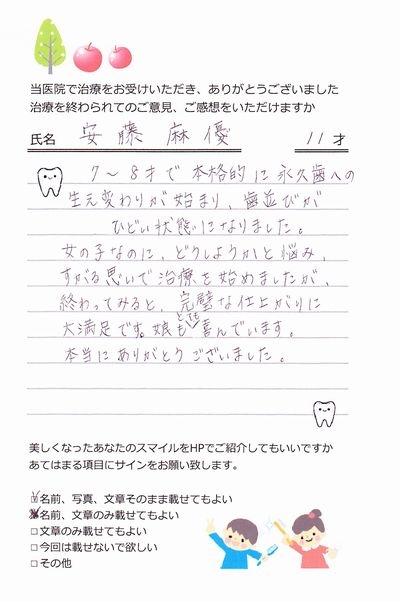 当医院で治療をお受けいただき、ありがとうございました
治療を終わられてのご意見、ご感想をいただけますか
氏名 安藤 麻優 11才
7～8才で本格的に永久歯への
生え変わりが始まり、歯並びが
ひどい状態になりました。
女の子なのに、どうしようかと悩み、
すがる思いで治療を始めましたが、
終わってみると、完璧な仕上がりに
大満足です。娘もとても喜んでいます。
本当にありがとうございました。
美しくなったあなたのスマイルをHPでご紹介してもいいですか
あてはまる項目にサインをお願い致します。
☑名前、写真、文章そのまま載せてもよい
☑名前、文章のみ載せてもよい
□文章のみ載せてもよい
□今回は載せないで欲しい
□その他